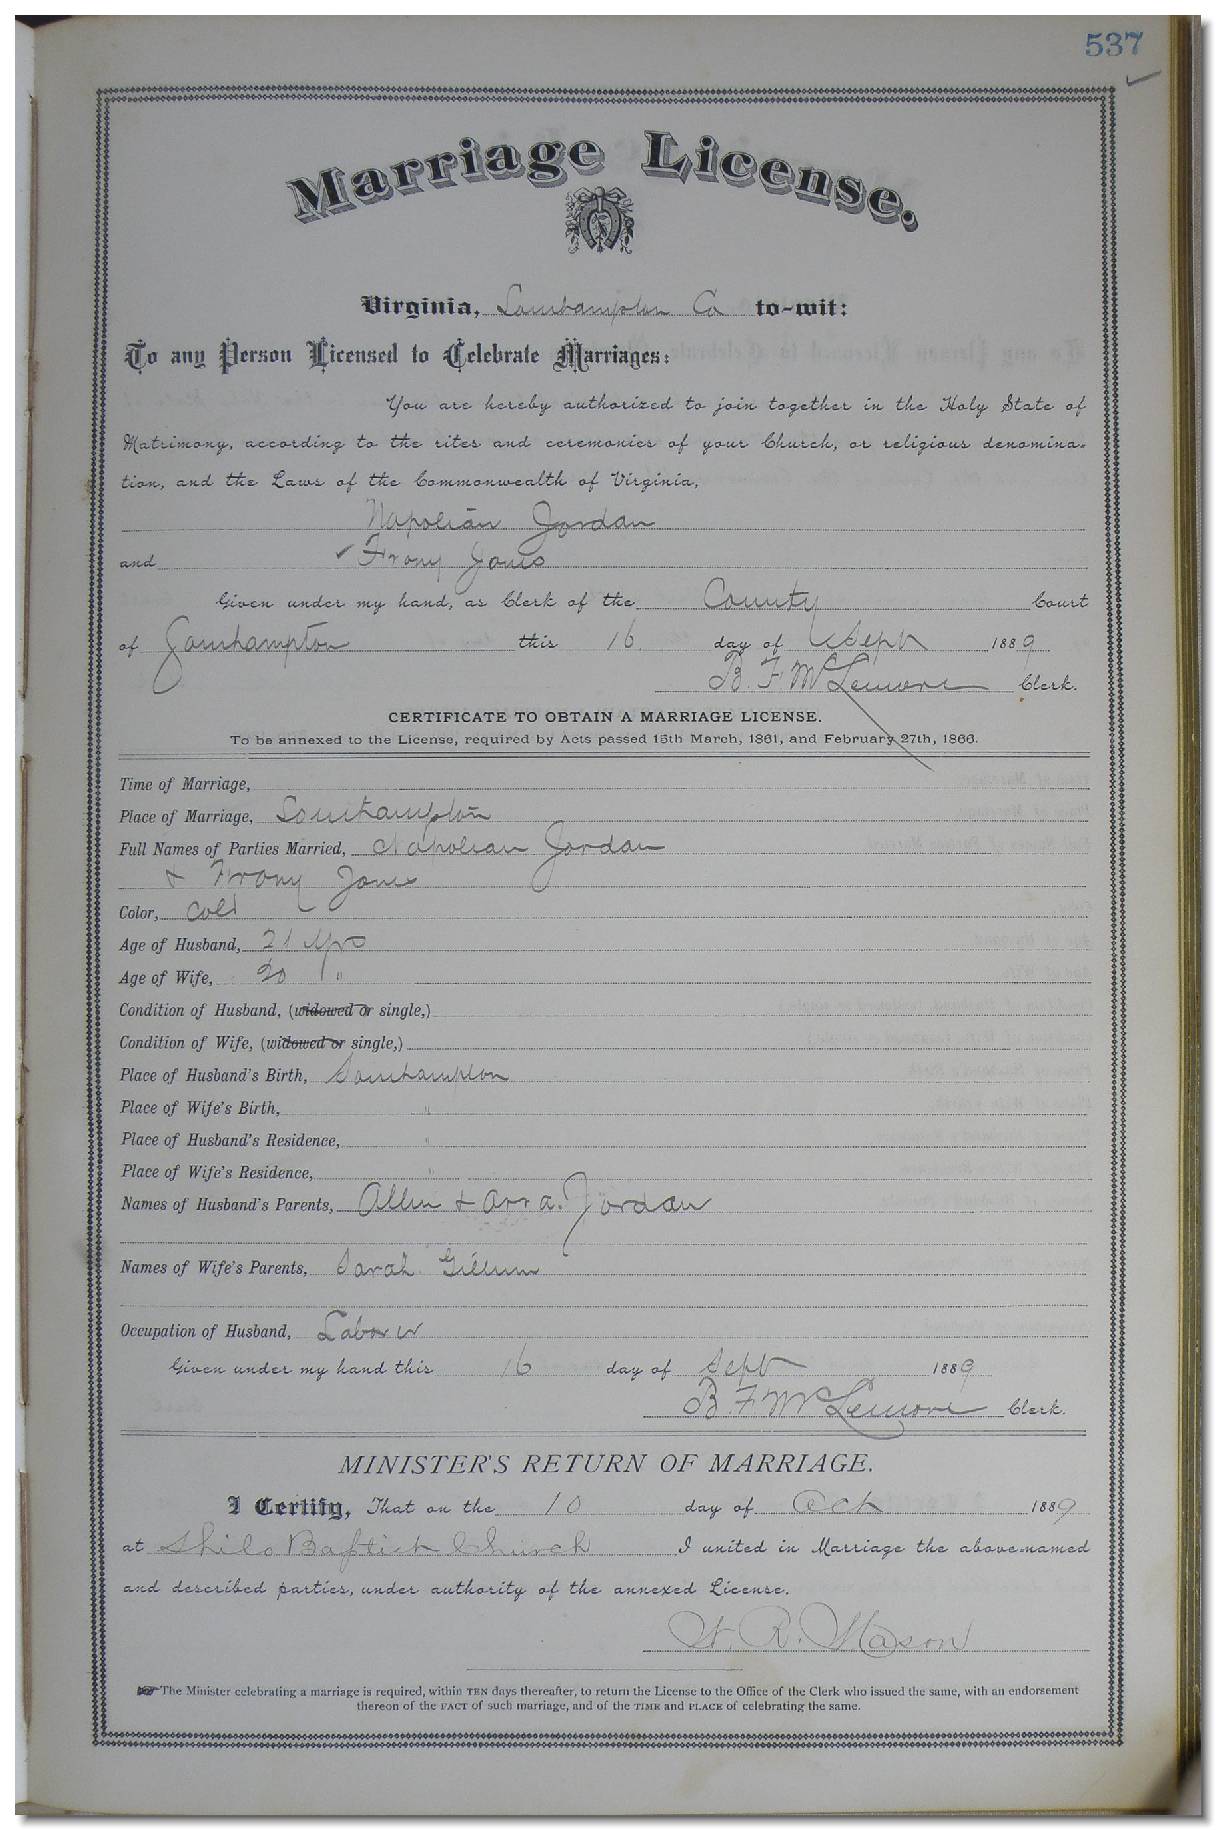 537
Marriage License.
Virginia, Southampton Co to-wit:
To any Person Licensed to Celebrate Marriages:
You are hereby authorized to join together in the Holy State of
Matrimony, according to the rites and ceremonies of your Church, or religious denomina-
tion, and the Laws of the Commonwealth of Virginia,
Napolian Jordan
and Frony Jones
Given under my hand, as Clerk of the County Court
of Southampton this 16 day of Sept 1889
B. F. McLemore Clerk.
CERTIFICATE TO OBTAIN A MARRIAGE LICENSE.
To be annexed to the License, required by Acts passed 15th March, 1861, and February 27th, 1866.
Time of Marriage,
Place of Marriage, Southampton
Full Names of Parties Married, Napolian Jordan
& Frony Jones
Color, Cold
Age of Husband, 21 Yrs
Age of Wife, 20 "
Condition of Husband, (widowed or single,)
Condition of Wife, (widowed or single,)
Place of Husband's Birth, Southampton
Place of Wife's Birth, "
Place of Husband's Residence, "
Place of Wife's Residence, "
Names of Husband's Parents, Allen & Arra Jordan
Names of Wife's Parents, Sarah Gillum
Occupation of Husband, Laborer
Given under my hand this 16 day of Sept 1889
B. F. McLemore Clerk.
MINISTER'S RETURN OF MARRIAGE.
I Certify, That on the 10 day of Oct 1889
at Shilo Baptist Church, I united in Marriage the above-named
and described parties, under authority of the annexed License.
R. Mason
The Minister celebrating a marriage is required, within TEN days thereafter, to return the License to the Office of the Clerk who issued the same, with an endorsement
thereof of the FACT of such marriage, and of the TIME and PLACE of celebrating the same.